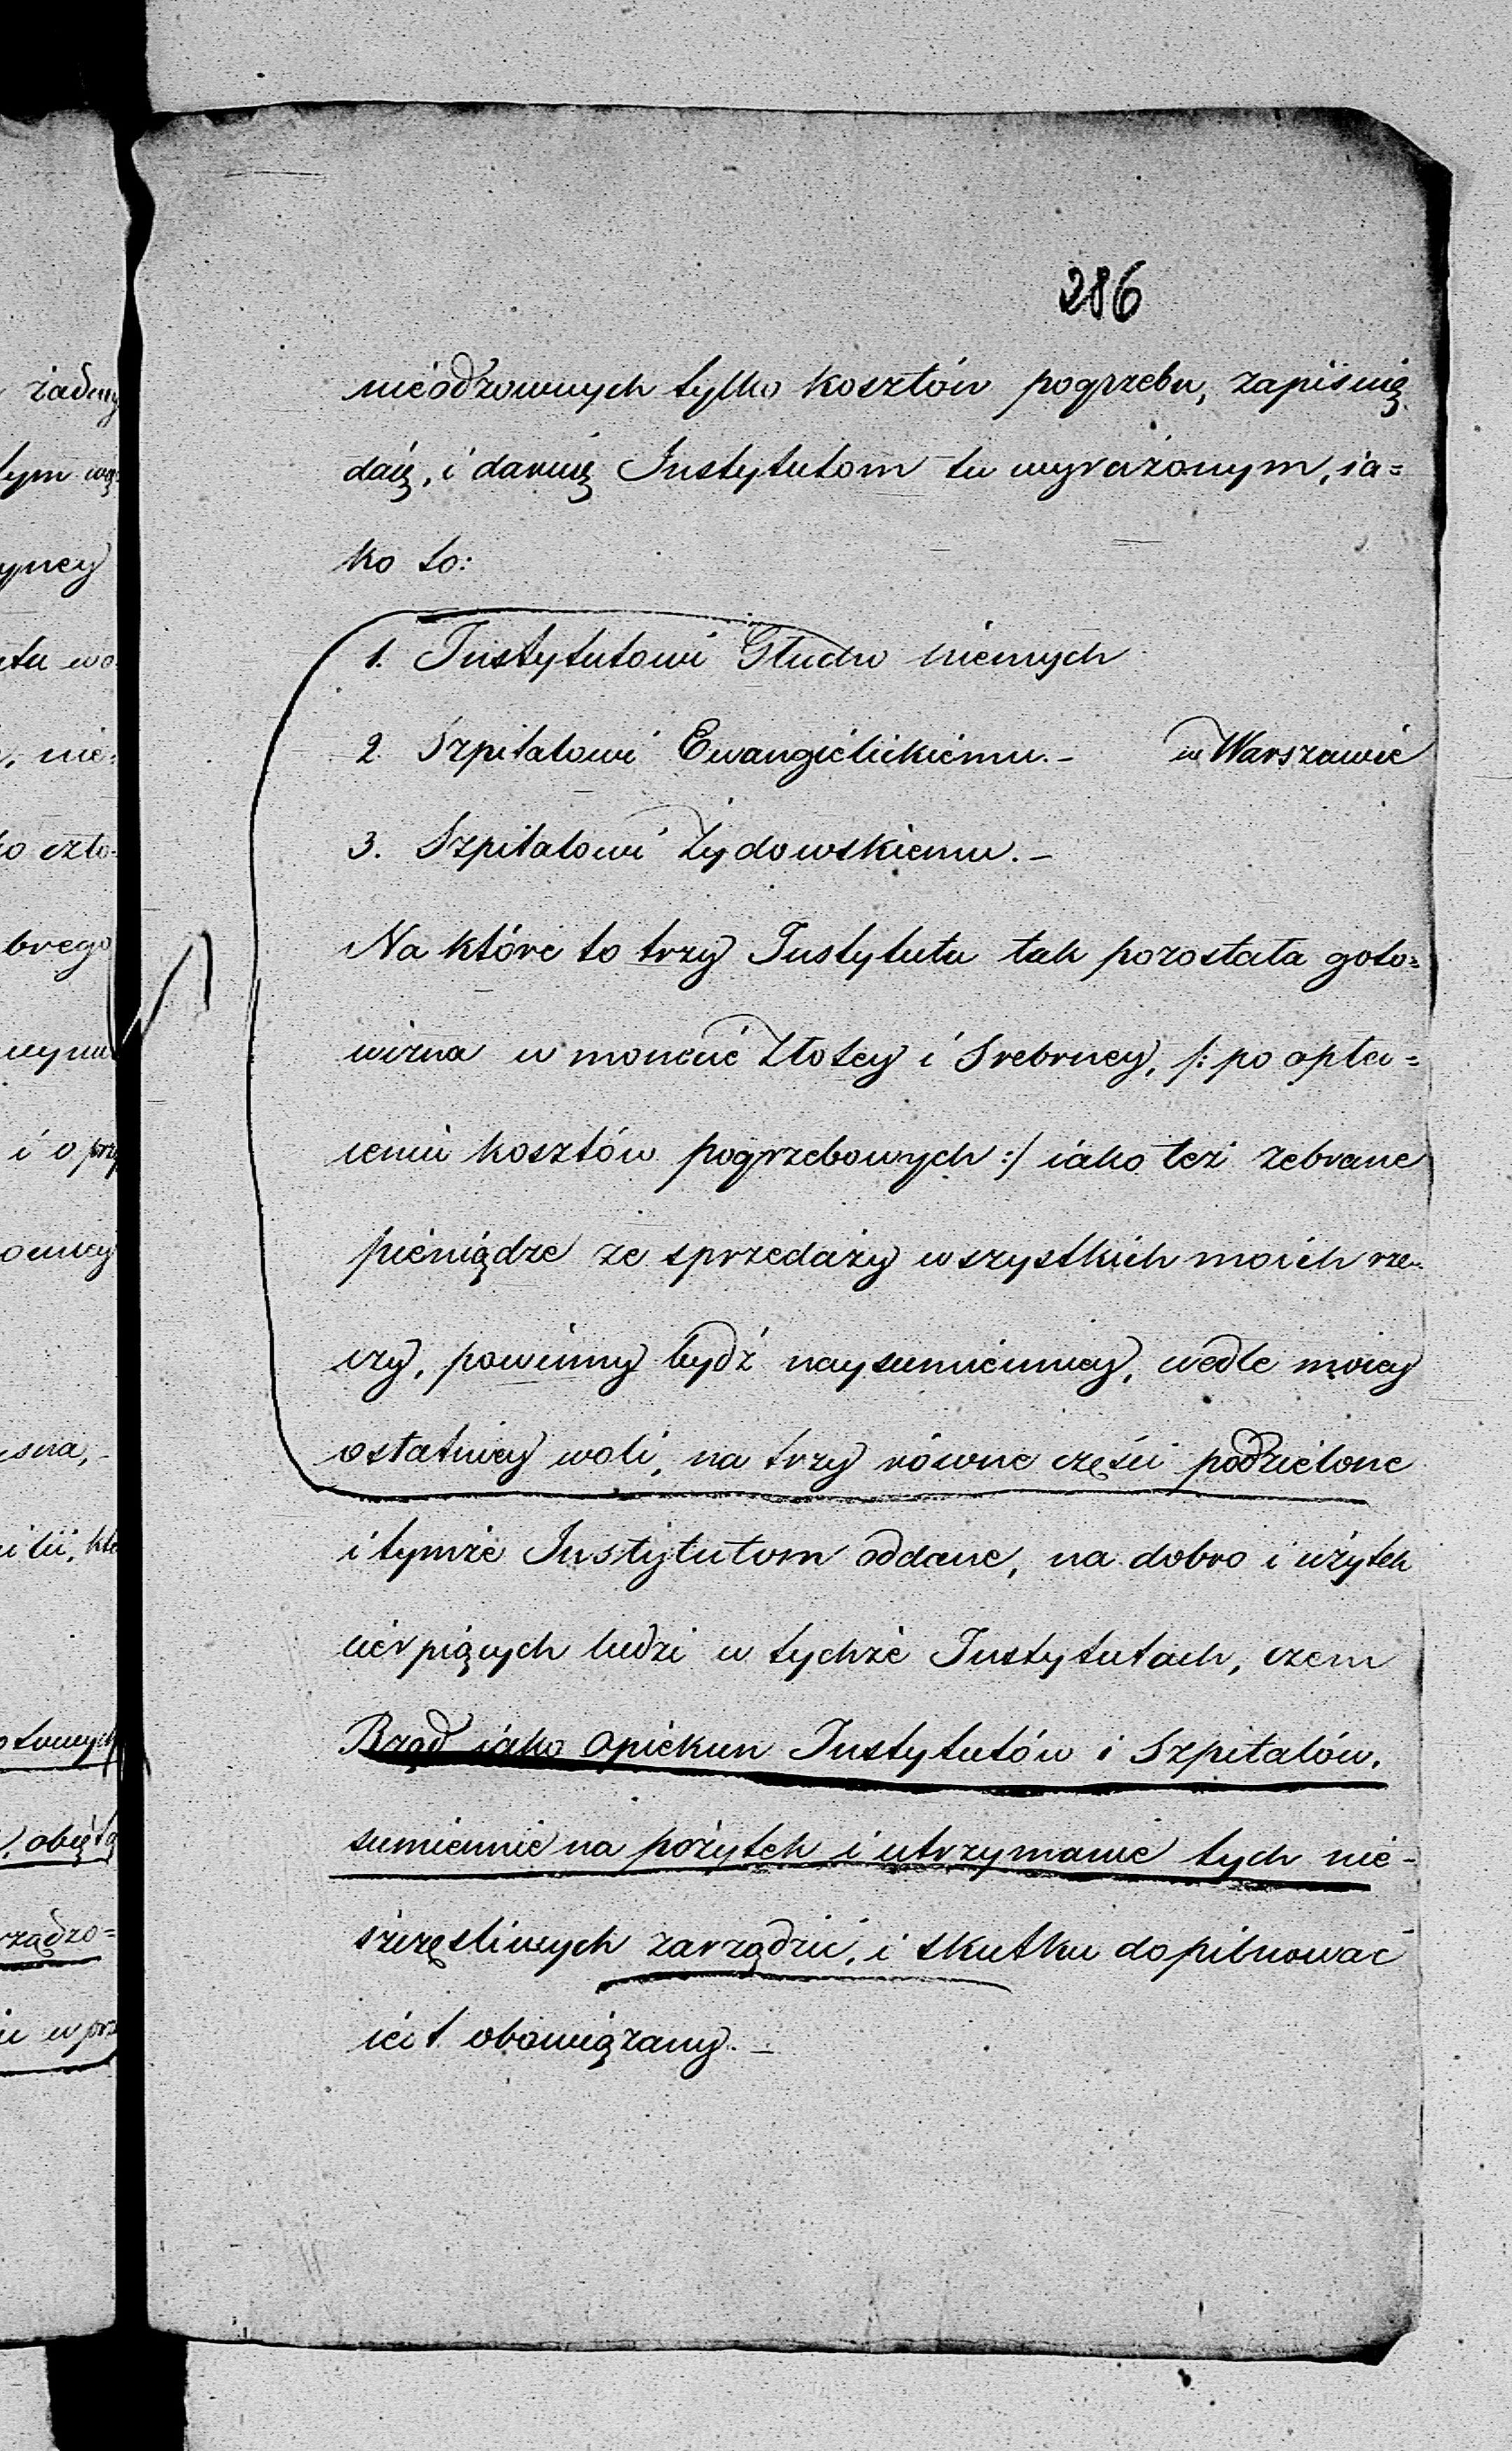 286
nieodzownych tylko kosztów pogrzebu, zapisuię
daię, i daruię Instytutom tu wyrażonym, ia=
ko to:
1. Instytutowi Głucho niemych
2. Szpitalowi Ewangielickiemu. - w Warszawie
3. Szpitalowi Żydowskiemu. -
Na które to trzy Instytuta tak pozostała goto=
wizna w monecie Złotey i Srebrney, /: po opła=
ceniu kosztów pogrzebowych :/ iako też zebrane
pieniądze ze sprzedaży wszystkich moich rze=
czy, powinny bydź naysumienniey, wedle moiey
ostatniey woli, na trzy równe części podzielone
i tymże Instytutom oddane, na dobro i użytek
cierpiących ludzi w tychże Instytutach, czem
Rząd iako Opiekun Instytutów i Szpitalów,
sumiennie na pożytek i utrzymanie tych nie-
szczęśliwych zarządzić, i skutku dopilnować
iest obowiązany. -
żadny
tym
yney
nie=
czło=
brego
i o prz
sna, -
obięta
rządzo=